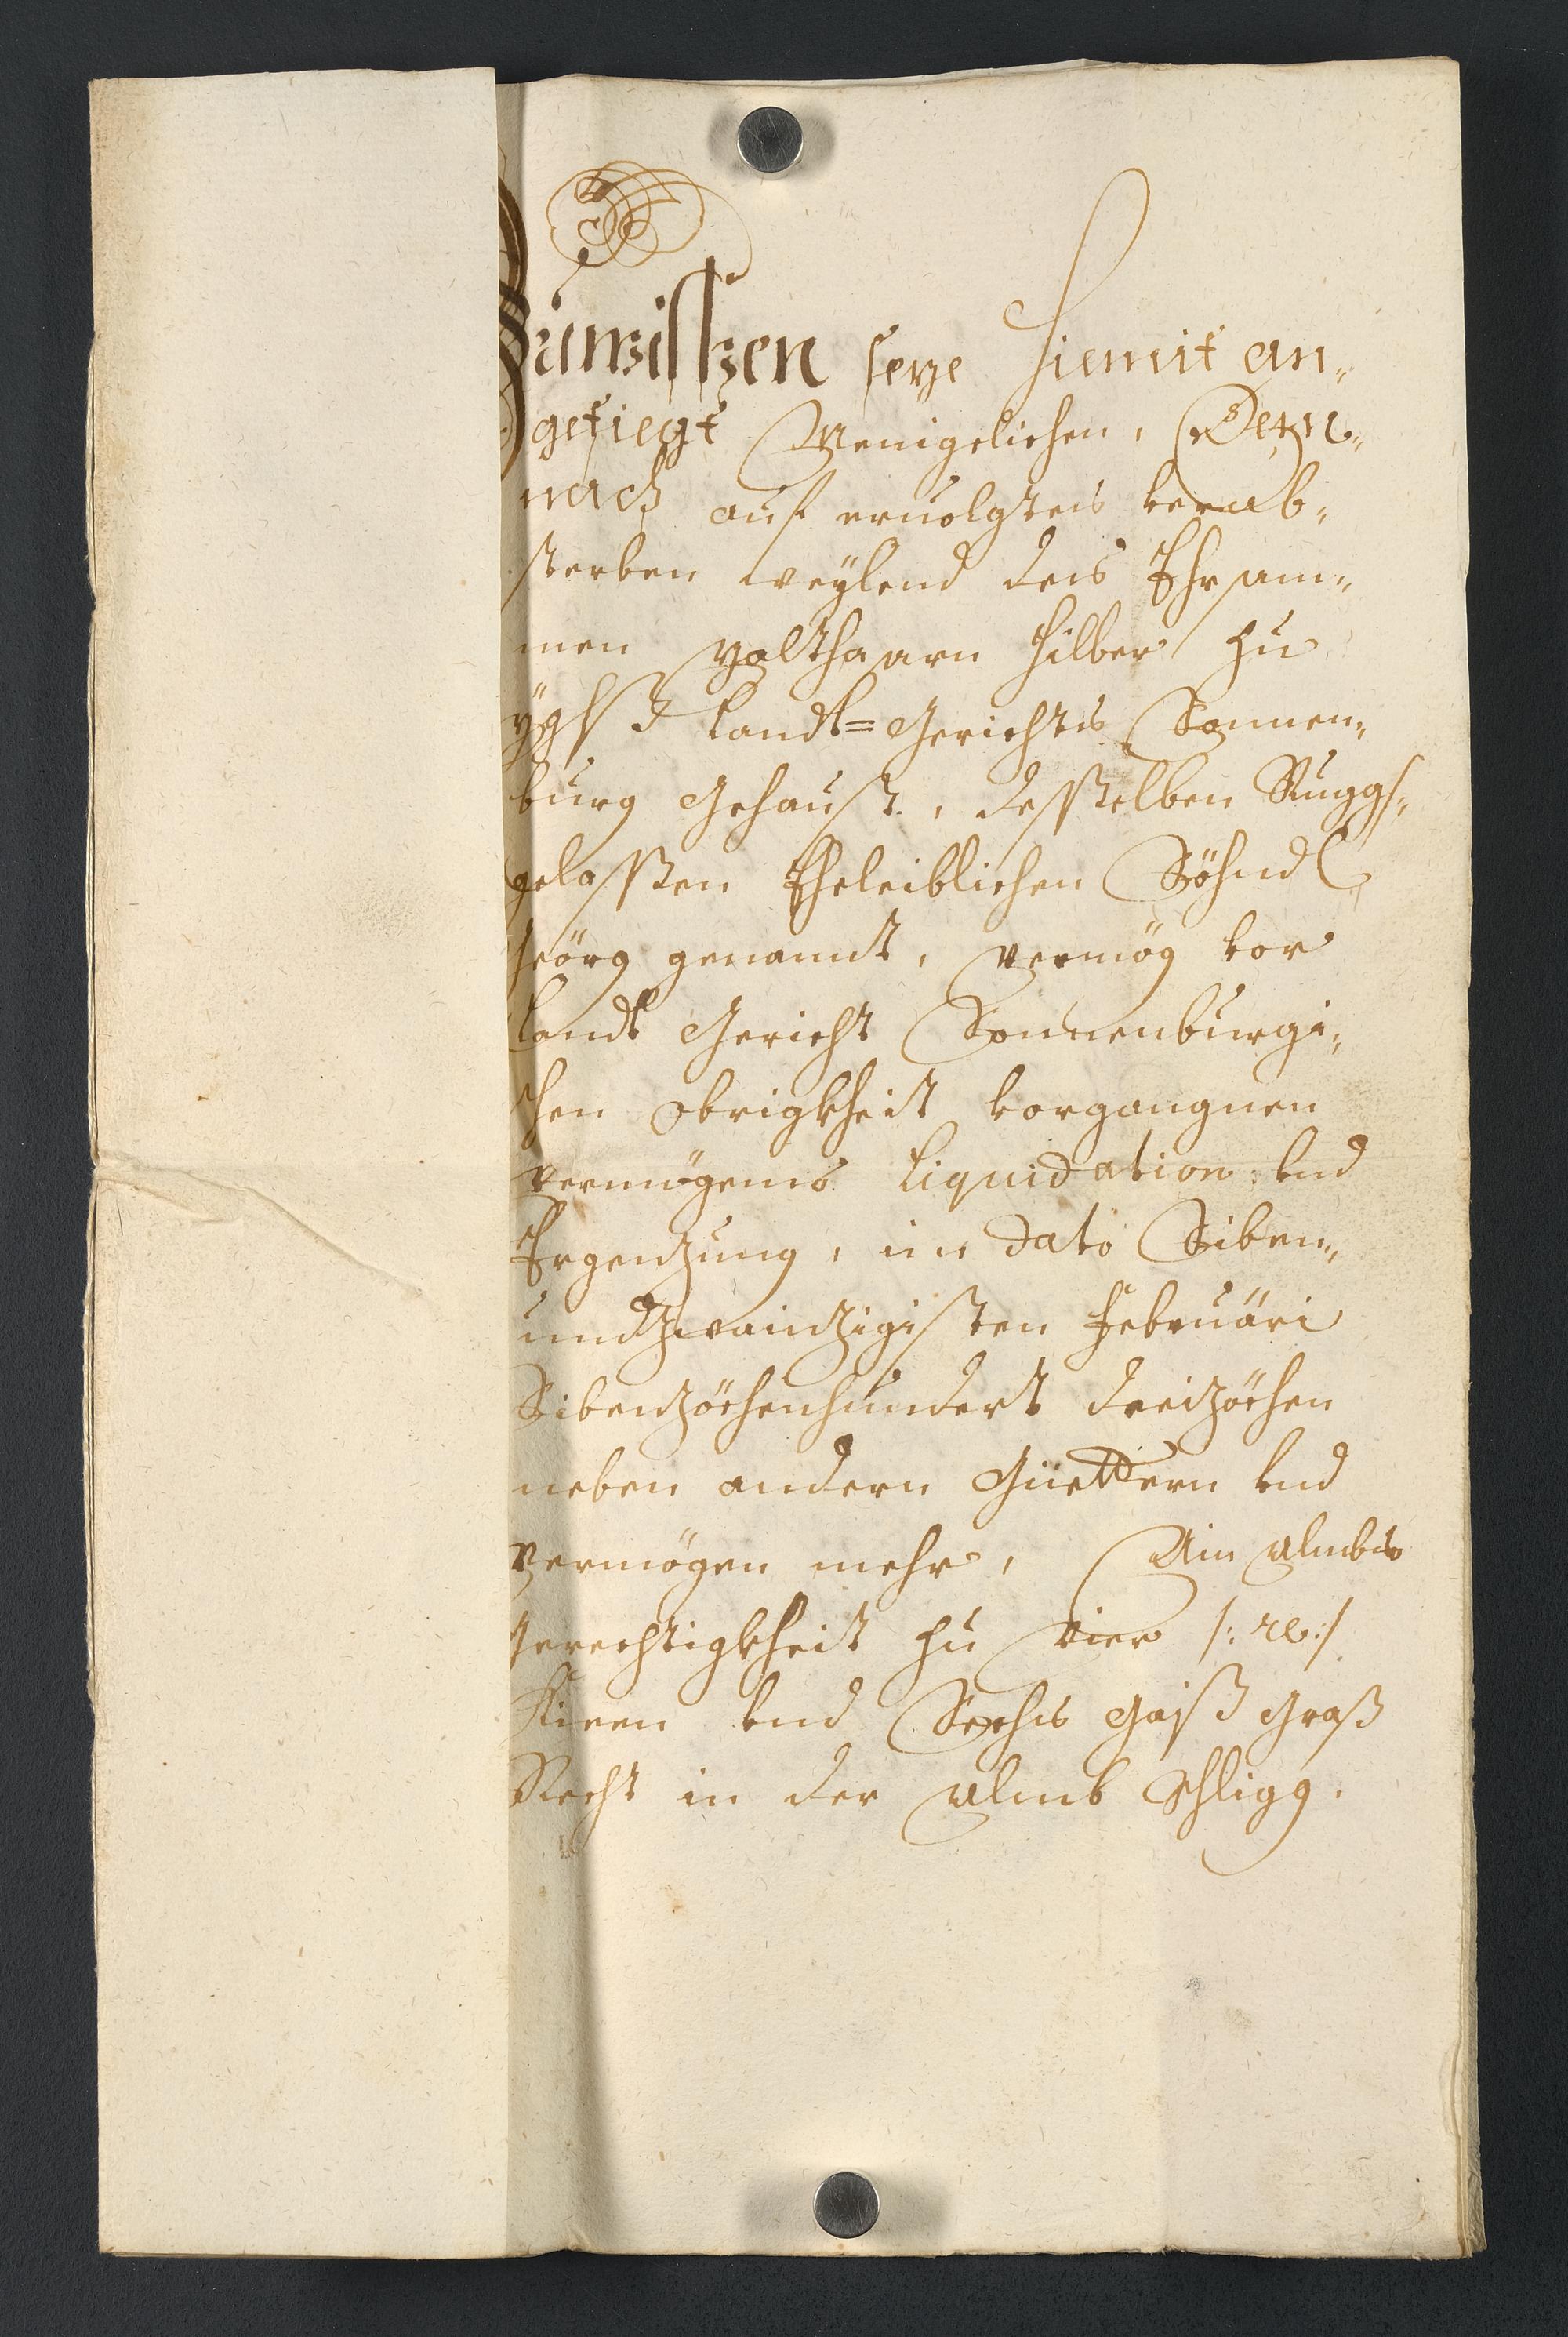 Zuwissen seye Hiemit an„
gefiegt Menigelichen, Dem„
nach auf ervolgtes verab„
sterben weylend des Ehrsam„
men Balthasarn Hilber zu
ygls Landt=Gerichts Sonnen„
burg Gehaust, desselben Ruggs„
gelassten Eheleiblichen Söhndl
Jeörg genannt, vermög vor
Landt Gericht Sonnenburgi„
schen Obrigkheit vorgangnen
vermögens Liquidation vnd
Ergenzung, in dato Siben„
undzwainzigisten Februäri
Sibenzöchenhundert dreizöchen
neben andern Güettern vnd
vermögen mehr, Ain Almbs
Gerechtigkheit zu vier /: re: /
Kieen vnd Sechs Gaiß Graß
Recht in der Almb Schligg.